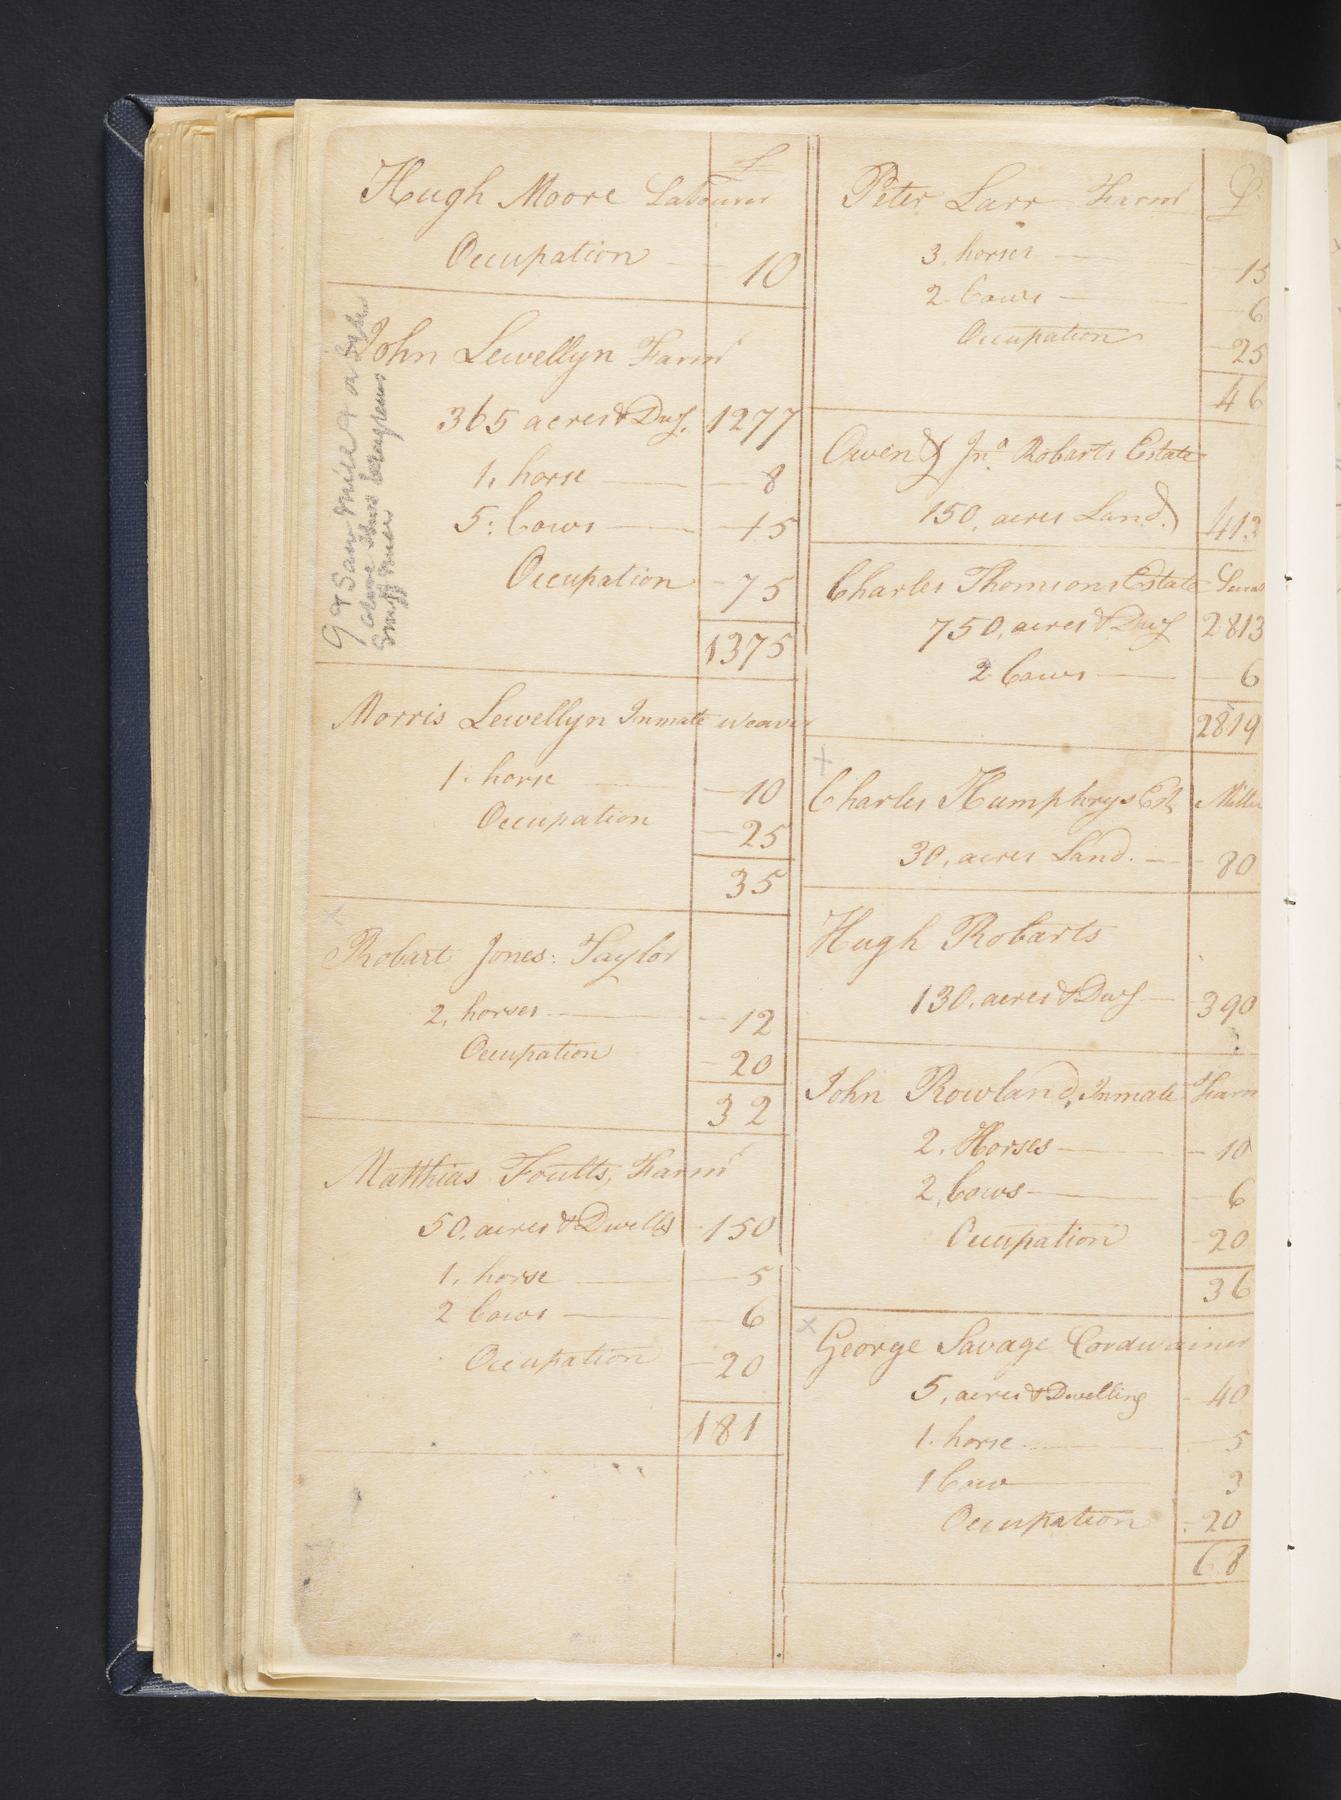 £
Hugh Moore Labourer
Occupation 10
John Lewellyn Farmr
365 acres & Dwg. 1277
1. horse 8
5: Cows 15
Occupation 75
1375
Gt & Saw Mill
above
Snuff Mill
Morris Lewellyn Inmate weaver
1. horse 10
Occupation 25
35
x
Robart Jones: Taylor
2. horses 12
Occupation 20
32
Matthias Foults, Farmr
50, acres & Dwellg 150
1. horse 5
2 Cows 6
Occupation 20
181
£
Peter Larr Farmr
3. horses 15
2 Cows 6
Occupation 25
46
Owen & Jno Robarts Estate
150, acres Land. 413
Charles Thomsons Estate
750, acres & Dwg 2813
2 Cows 6
2819
+
Charles Humphrys Est Miller
30, acres Land. 80
Hugh Robarts
130, acres & Dwg 390
John Rowland, Inmate Farm
2. Horses 10
2, Cows 6
Occupation 20
36
x
George Savage Cordwainer
5, acres & Dwelling 40
1. horse 5
1 Cow 3
Occupation 20
68